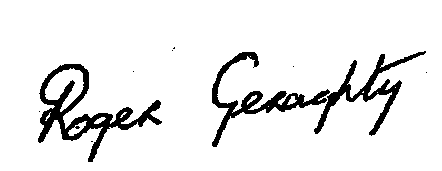 Roger Geraghty